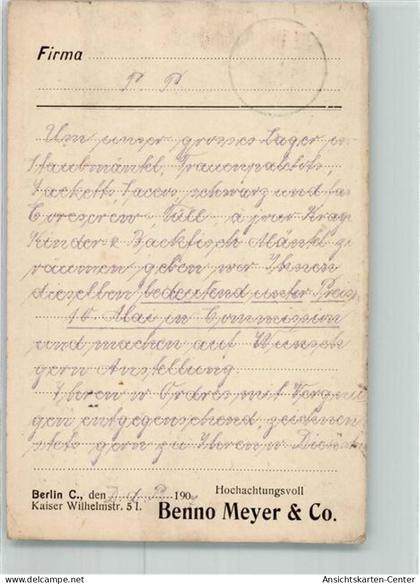 Firma
P P
Um unser grosses Lager in
Staubmäntel, Frauenpaletots,
Jacketts, Sacco, schwarz und
Corcscrew Tüll, a jour Krag
Kinder & Backfisch Mäntel z
räumen geben wir Ihnen
dieselben bedeutend unter Preis
15 Mai in Commission
und machen auf Wunsch
gern Anstellung.
Ihren w Ordres mit Vergnü
gen entgegensehend, zeichnen
stets gern zu Ihren w Diensten
Berlin C., den 190
Hochachtungsvoll
Kaiser Wilhelmstr. 5 I.
Benno Meyer & Co.
https://www.delcampe.net
Ansichtskarten-Center